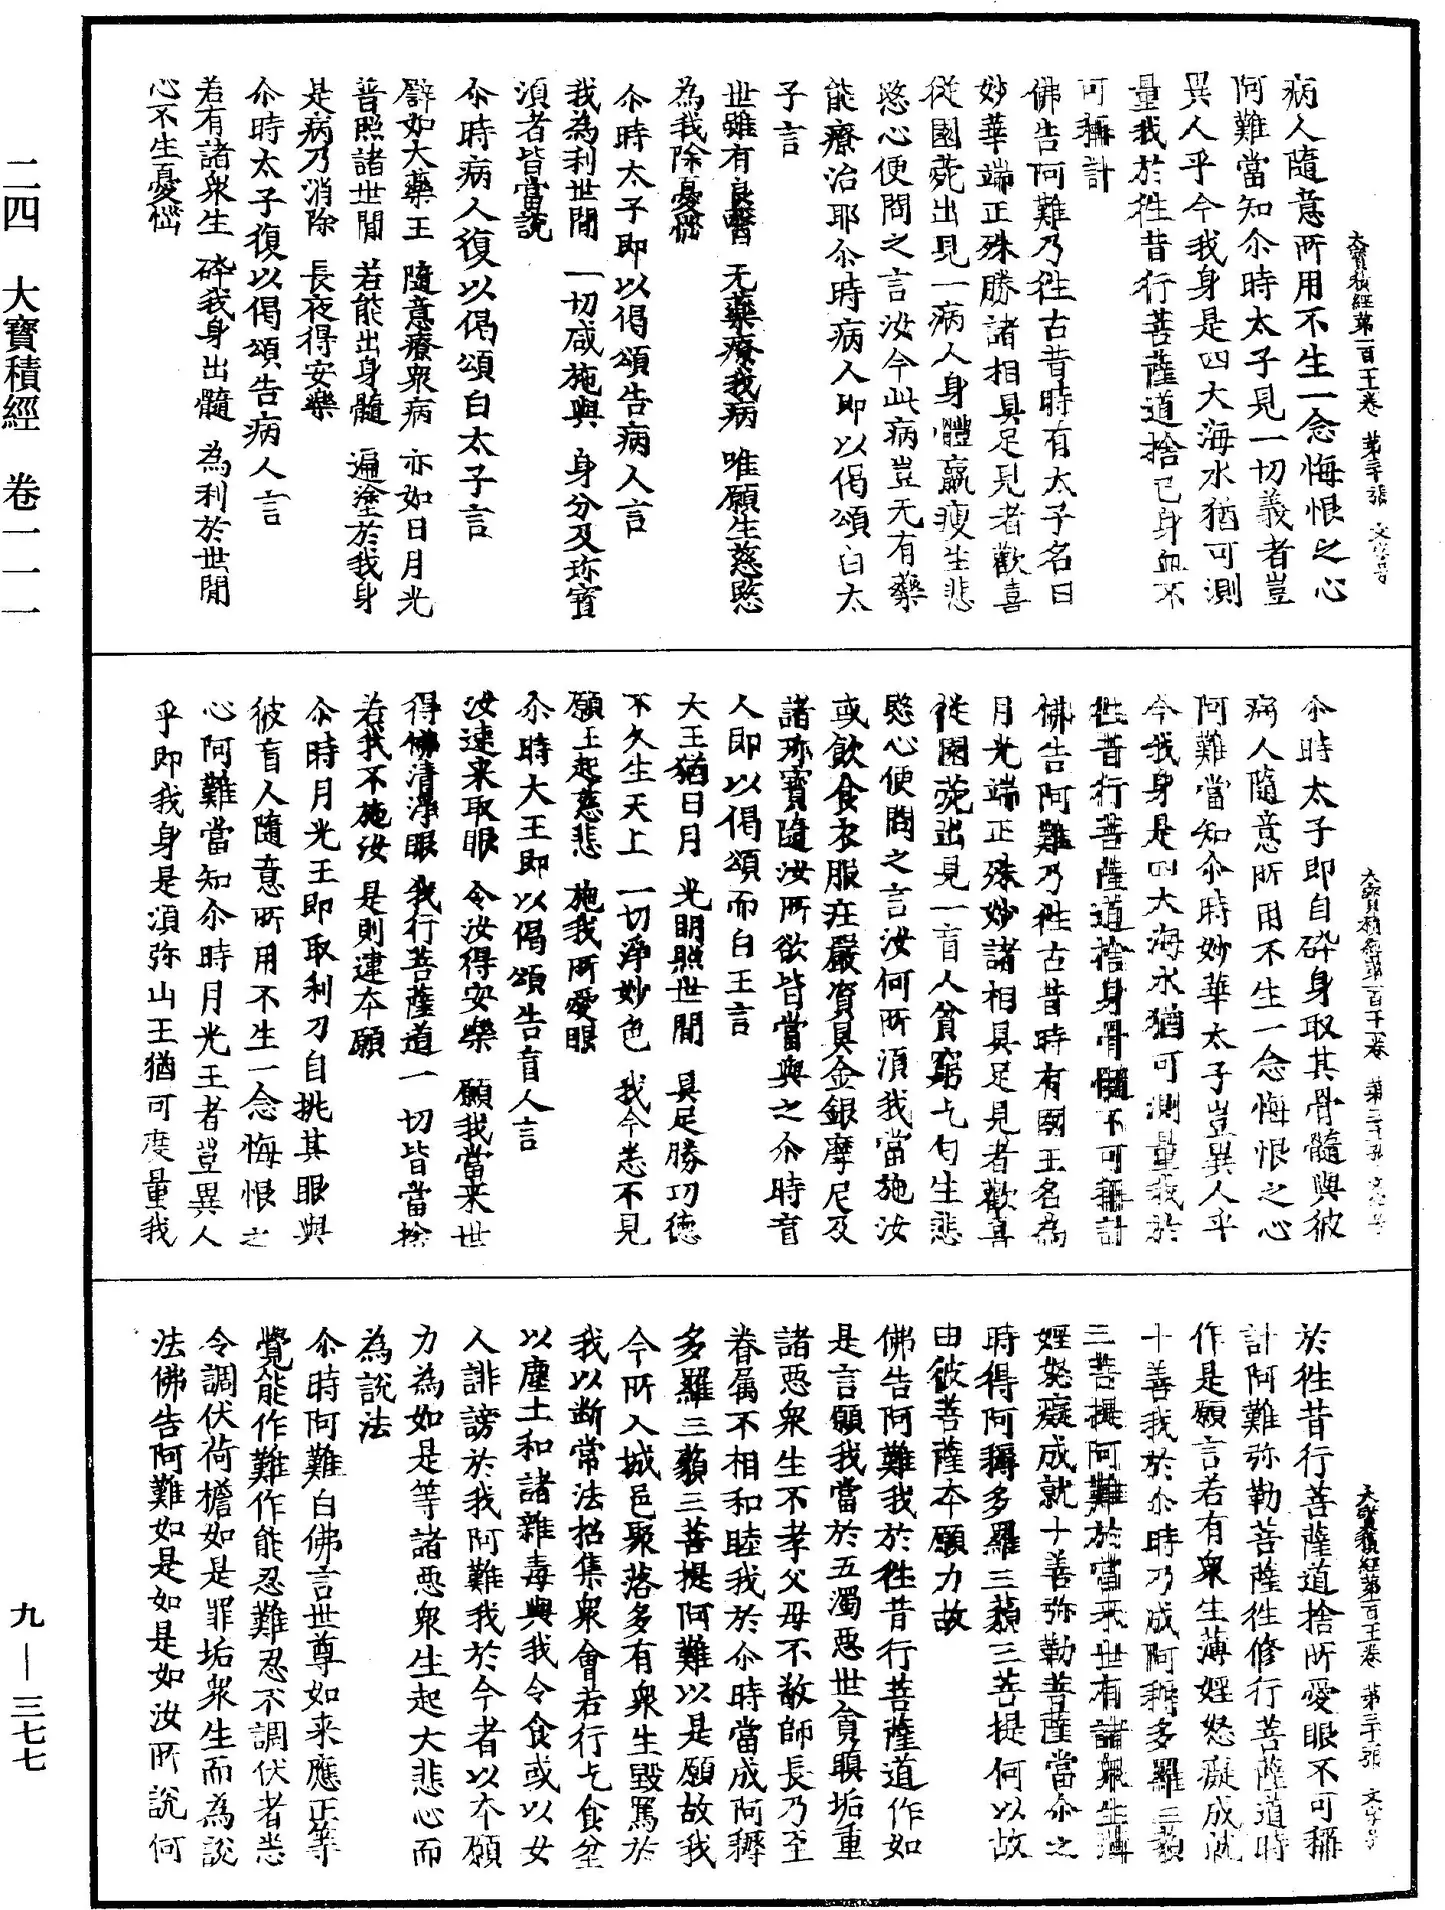 大寶積經第一百十一卷 第二十張 文字号
病人隨意所用不生一念悔恨之心
阿難當知尒時太子見一切義者豈
異人乎今我身是四大海水猶可測
量我於往昔行菩薩道捨已身血不
可稱計
佛告阿難乃往古昔時有太子名曰
妙華端正殊勝諸相具足見者歡喜
從園苑出見一病人身體羸瘦生悲
愍心便問之言汝今此病豈无有藥
能療治耶尒時病人即以偈頌白太
子言
世雖有良醫 无藥療我病 唯願生慈愍
為我除憂惱
尒時太子即以偈頌告病人言
我為利世間 一切咸施與 身分及珎寶
湏者皆當說
尒時病人復以偈頌白太子言
譬如大藥王 隨意療衆病 亦如日月光
普照諸世間 若能出身髓 遍塗於我身
是病乃消除 長夜得安樂
尒時太子復以偈頌告病人言
若有諸衆生 碎我身出髓 為利於世間
心不生憂惱
大寶積經第一百十一卷 第二十張 文字号
尒時太子即自碎身取其骨髓與彼
病人隨意所用不生一念悔恨之心
阿難當知尒時妙華太子豈異人乎
今我身是四大海水猶可測量我於
往昔行菩薩道捨身骨髓不可稱計
佛告阿難乃往古昔時有國王名為
月光端正殊妙諸相具足見者歡喜
從園苑出見一盲人貧窮乞匃生悲
愍心便問之言汝何所湏我當施汝
或飲食衣服庄嚴資具金銀摩尼及
諸珎寶隨汝所欲皆當與之尒時盲
人即以偈頌而白王言
大王猶日月 光明照世間 具足勝功德
不久生天上 一切淨妙色 我今悉不見
願王起慈悲 施我所愛眼
尒時大王即以偈頌告盲人言
汝速来取眼 令汝得安樂 願我當来世
得佛清淨眼 我行菩薩道 一切皆當捨
若我不施汝 是則違夲願
尒時月光王即取利刀自挑其眼與
彼盲人隨意所用不生一念悔恨之
心阿難當知尒時月光王者豈異人
乎即我身是湏弥山王猶可度量我
大寶積經第一百十一卷 第二十張 文字号
於往昔行菩薩道捨所愛眼不可稱
計阿難弥勒菩薩往修行菩薩道時
作是願言若有衆生薄婬怒癡成就
十善我於尒時乃成阿耨多羅三藐
三菩提阿難於當来世有諸衆生薄
婬怒癡成就十善弥勒菩薩當尒之
時得阿耨多羅三藐三菩提何以故
由彼菩薩夲願力故
佛告阿難我於往昔行菩薩道作如
是言願我當於五濁惡世貪瞋垢重
諸惡衆生不孝父母不敬師長乃至
眷属不相和睦我於尒時當成阿耨
多羅三藐三菩提阿難以是願故我
今所入城邑聚落多有衆生毀罵於
我以断常法招集衆會若行乞食坌
以塵土和諸雜毒與我令食或以女
人誹謗於我阿難我於今者以夲願
力為如是等諸惡衆生起大悲心而
為說法
尒時阿難白佛言世尊如来應正等
覺能作難作能忍難忍不調伏者悉
令調伏荷擔如是罪垢衆生而為說
法佛告阿難如是如是如汝所說何
二四 大寶積經 卷一一一
九—三七七